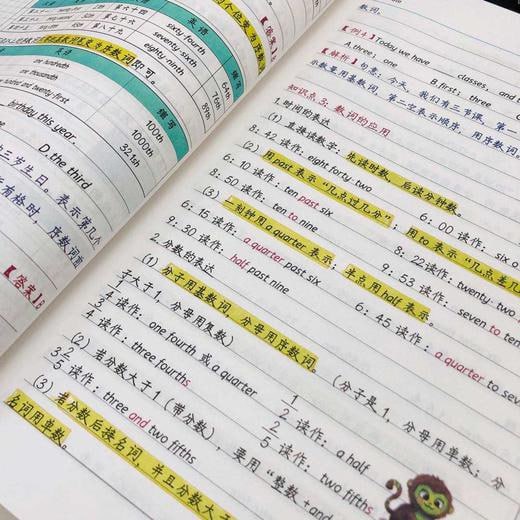 第六十四
第七十六
第八十九
英语
sixty fourth
seventy sixth
eighty ninth
缩写
64th
76th
89th
英语
one hundredth
one thousandth
缩写
100th
1000th
321st
birthday this year.
D. the third
三岁生日。表示第几个
序数词前
【答案】B
数词。
【例1】Today we have classes, and
A. three; one B. first; three
【解析】句意：今天，我们有三节课，第一
示数量用基数词，第二空表示顺序，用序数词。
知识点3：数词的应用
1. 时间的表达
(1) 直接读数字：先读时数，后读分钟数。
8：42 读作：eight forty-two 6：00 读作：six o
(2) 用past表示“几点过几分”；用to表示“几点差几
6：10 读作：ten past six
8：50 读作：ten to nine 8：22 读作：twenty-two
(3) 一刻钟用a quarter表示；半点用half表示。
6：15 读作：a quarter past six 9：53 读作：seven to ten
9：30 读作：half past nine 6：45 读作：a quarter to se
2. 分数的表达
(1) 分子用基数词，分母用序数词。（分子是1，分母用单数；分
子大于1，分母用复数）
1/4 读作：one fourth 或 a quarter 1/2 读作：a half
3/4 读作：three fourths 2/5 读作：two fifths
(2) 若分数大于1（带分数），要用“整数+and
3 2/5 读作：three and two fifths
(3) 若分数后接名词，并且分数大于
名词用单数。